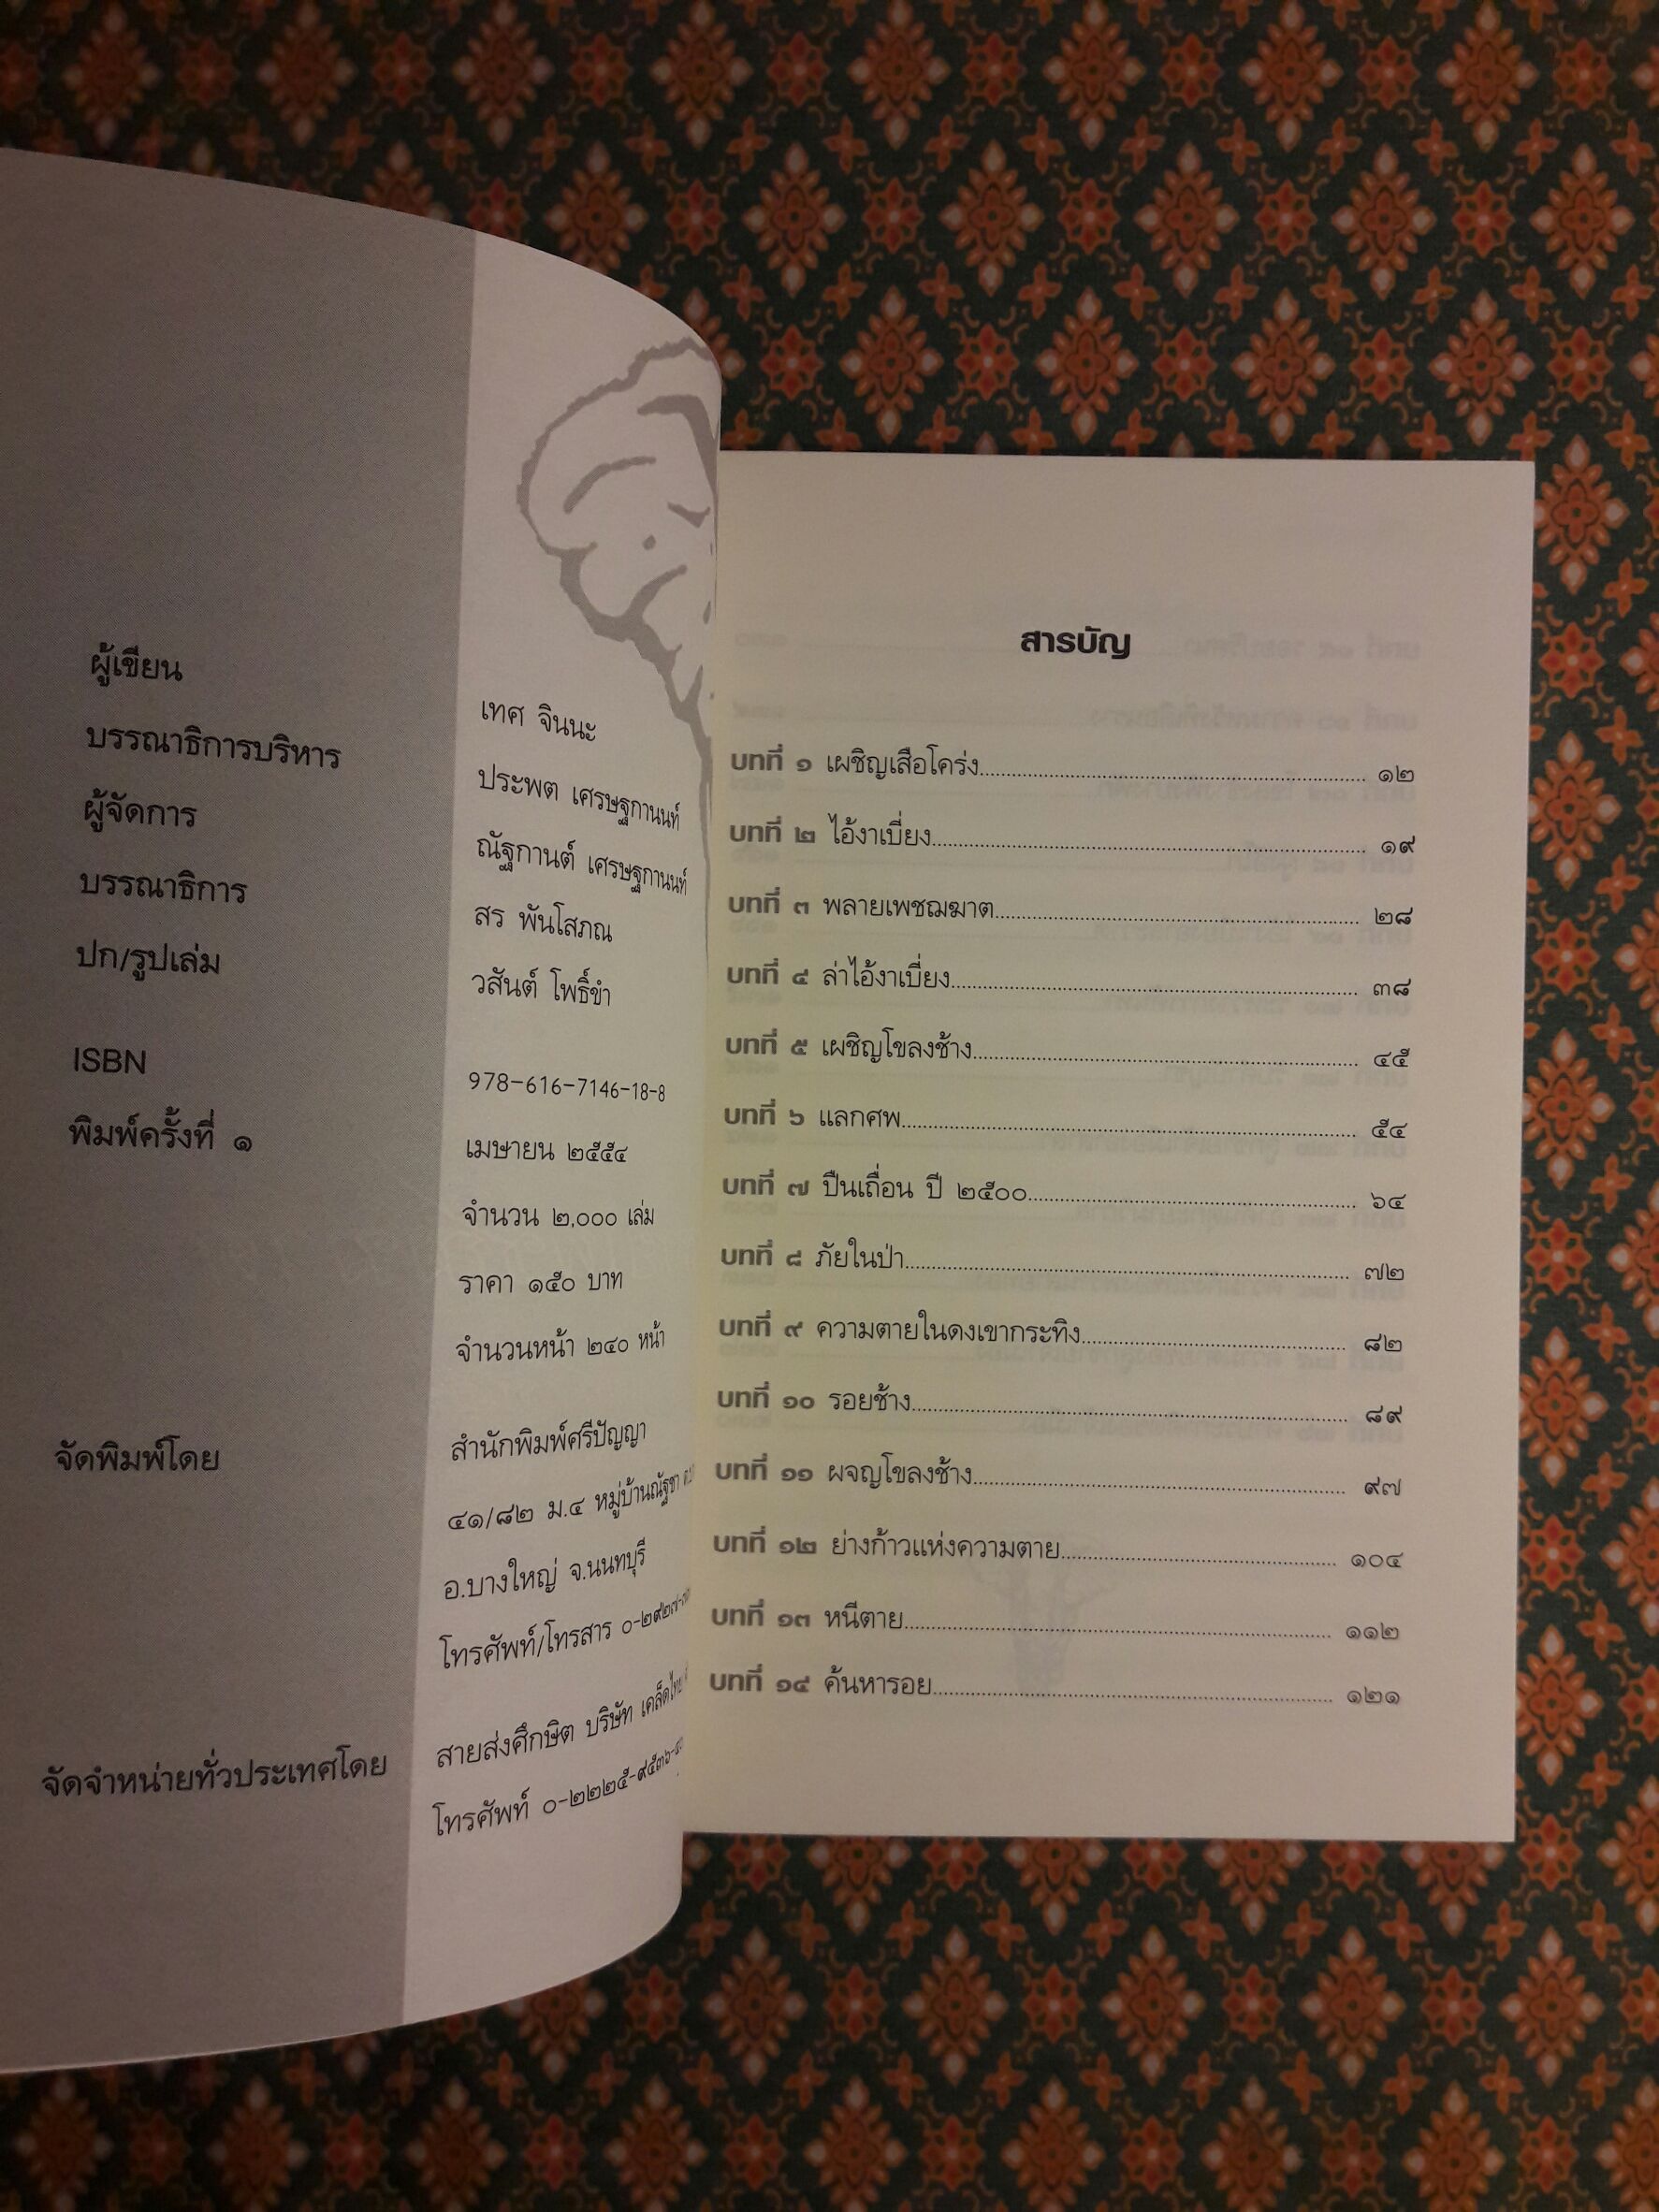 ผู้เขียน เทศ จินนะ
บรรณาธิการบริหาร ประพต เศรษฐกานนท์
ผู้จัดการ ณัฐกานต์ เศรษฐกานนท์
บรรณาธิการ สร พันโสภณ
ปก/รูปเล่ม วสันต์ โพธิ์ขำ
ISBN 978-616-7146-18-8
พิมพ์ครั้งที่ ๑ เมษายน ๒๕๕๔
จำนวน ๒,๐๐๐ เล่ม
ราคา ๑๕๐ บาท
จำนวนหน้า ๒๔๐ หน้า
จัดพิมพ์โดย สำนักพิมพ์ศรีปัญญา
๔๑/๘๒ ม.๔ หมู่บ้านณัฐชา
อ.บางใหญ่ จ.นนทบุรี
โทรศัพท์/โทรสาร
จัดจำหน่ายทั่วประเทศโดย สายส่งศึกษิต บริษัท เคล็ดไทย
โทรศัพท์
สารบัญ
บทที่ ๑ เผชิญเสือโคร่ง ๑๒
บทที่ ๒ ไอ้งาเบี่ยง ๑๙
บทที่ ๓ พลายเพชฌฆาต ๒๘
บทที่ ๔ ล่าไอ้งาเบี่ยง ๓๘
บทที่ ๕ เผชิญโขลงช้าง ๔๕
บทที่ ๖ แลกศพ ๕๔
บทที่ ๗ ปืนเถื่อน ปี ๒๕๐๐ ๖๔
บทที่ ๘ ภัยในป่า ๗๒
บทที่ ๙ ความตายในดงเขากระทิง ๘๒
บทที่ ๑๐ รอยช้าง ๘๙
บทที่ ๑๑ ผจญโขลงช้าง ๙๗
บทที่ ๑๒ ย่างก้าวแห่งความตาย ๑๐๔
บทที่ ๑๓ หนีตาย ๑๑๒
บทที่ ๑๔ ค้นหารอย ๑๒๑